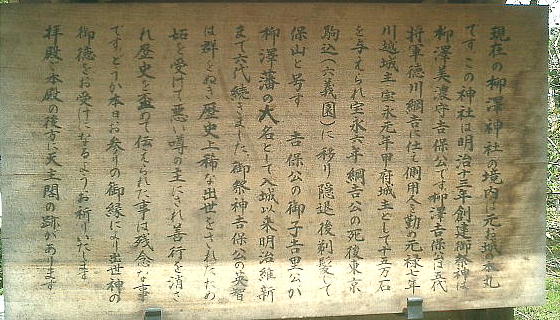 現在の柳澤神社の境内は元お城の本丸
です この神社は明治十三年創建御祭神は
柳澤美濃守吉保公です 柳澤吉保公は五代
将軍徳川綱吉に仕え側用人を勤め元禄七年
川越城主宝永元年甲府城主として十五万石
を与えられ宝永六年綱吉公の死後東京
駒込(六義園)に移り隠退後剃髪して
保山と号す 吉保公の御子吉里公が
柳澤藩の大名として入城以来明治維新
まで六代続きました 御祭神吉保公の英智
は群をぬき歴史上稀な出世をされたため
妬を受けて悪い噂の主にされ善行を消さ
れ歴史を歪めて伝えられた事は残念な事
です どうか本日お参りの御縁により出世の神の
御徳をお受けになるようお祈りいたします
拝殿本殿の後方に天主閣の跡があります